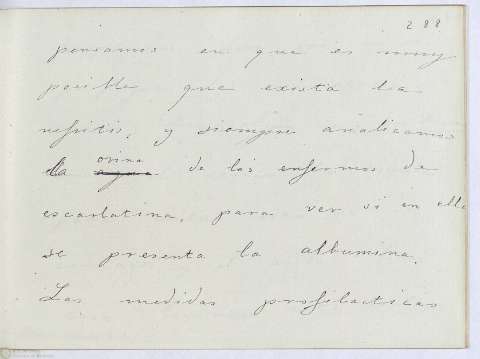 288
pensamos en que es muy
posible que exista la
nefritis, y siempre analizamos
la orina de los enfermos de
escarlatina, para ver si en ella
se presenta la albumina.
Las medidas profilacticas